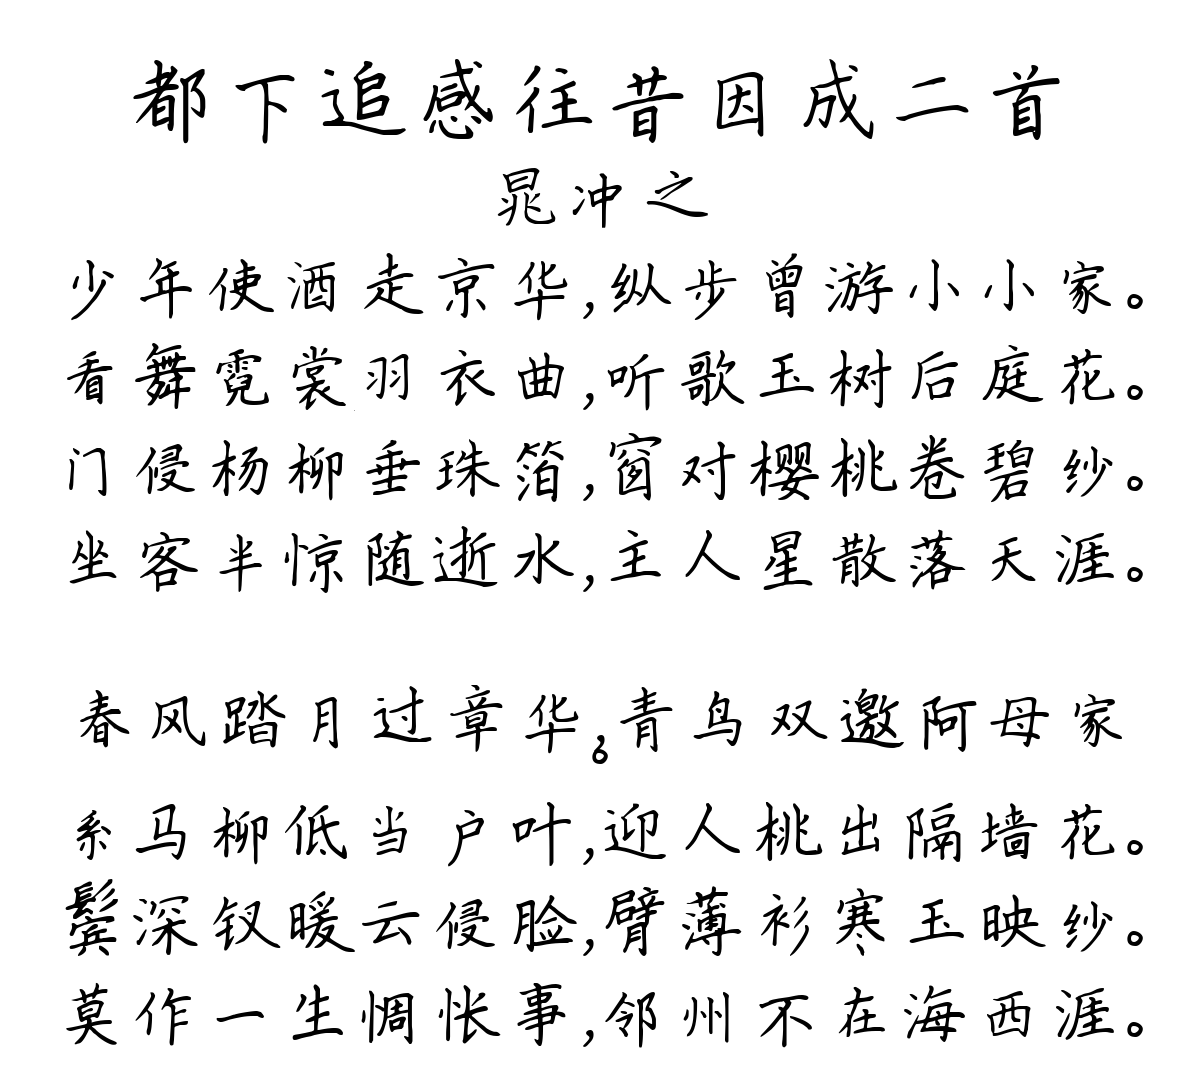 都下追感往昔因成二首
晁冲之
少年使酒走京华,纵步曾游小小家。
看舞霓裳羽衣曲,听歌玉树后庭花。
门侵杨柳垂珠箔,窗对樱桃卷碧纱。
坐客半惊随逝水,主人星散落天涯。
春风踏月过章华,。青鸟双邀阿母家
系马柳低当户叶,迎人桃出隔墙花。
鬓深钗暖云侵脸,臂薄衫寒玉映纱。
莫作一生惆怅事,邻州不在海西涯。